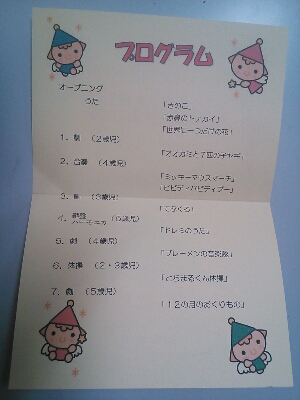 プログラム
オープニング
うた
「きのこ」
「赤鼻のトナカイ」
「世界に一つだけの花」
1．劇　（2歳児）
「オオカミと7匹の子ヤギ」
2．合奏　（4歳児）
「ミッキーマウスマーチ」
「ビビディバビディブー」
3．劇（3歳児）
「てぶくろ」
4．鍵盤ハーモニカ（5歳児）
「ドレミのうた」
5．劇　（4歳児）
「ブレーメンの音楽隊」
6．体操　（2・3歳児）
体操」
7．劇　（5歳児）
「12の月のおくりもの」